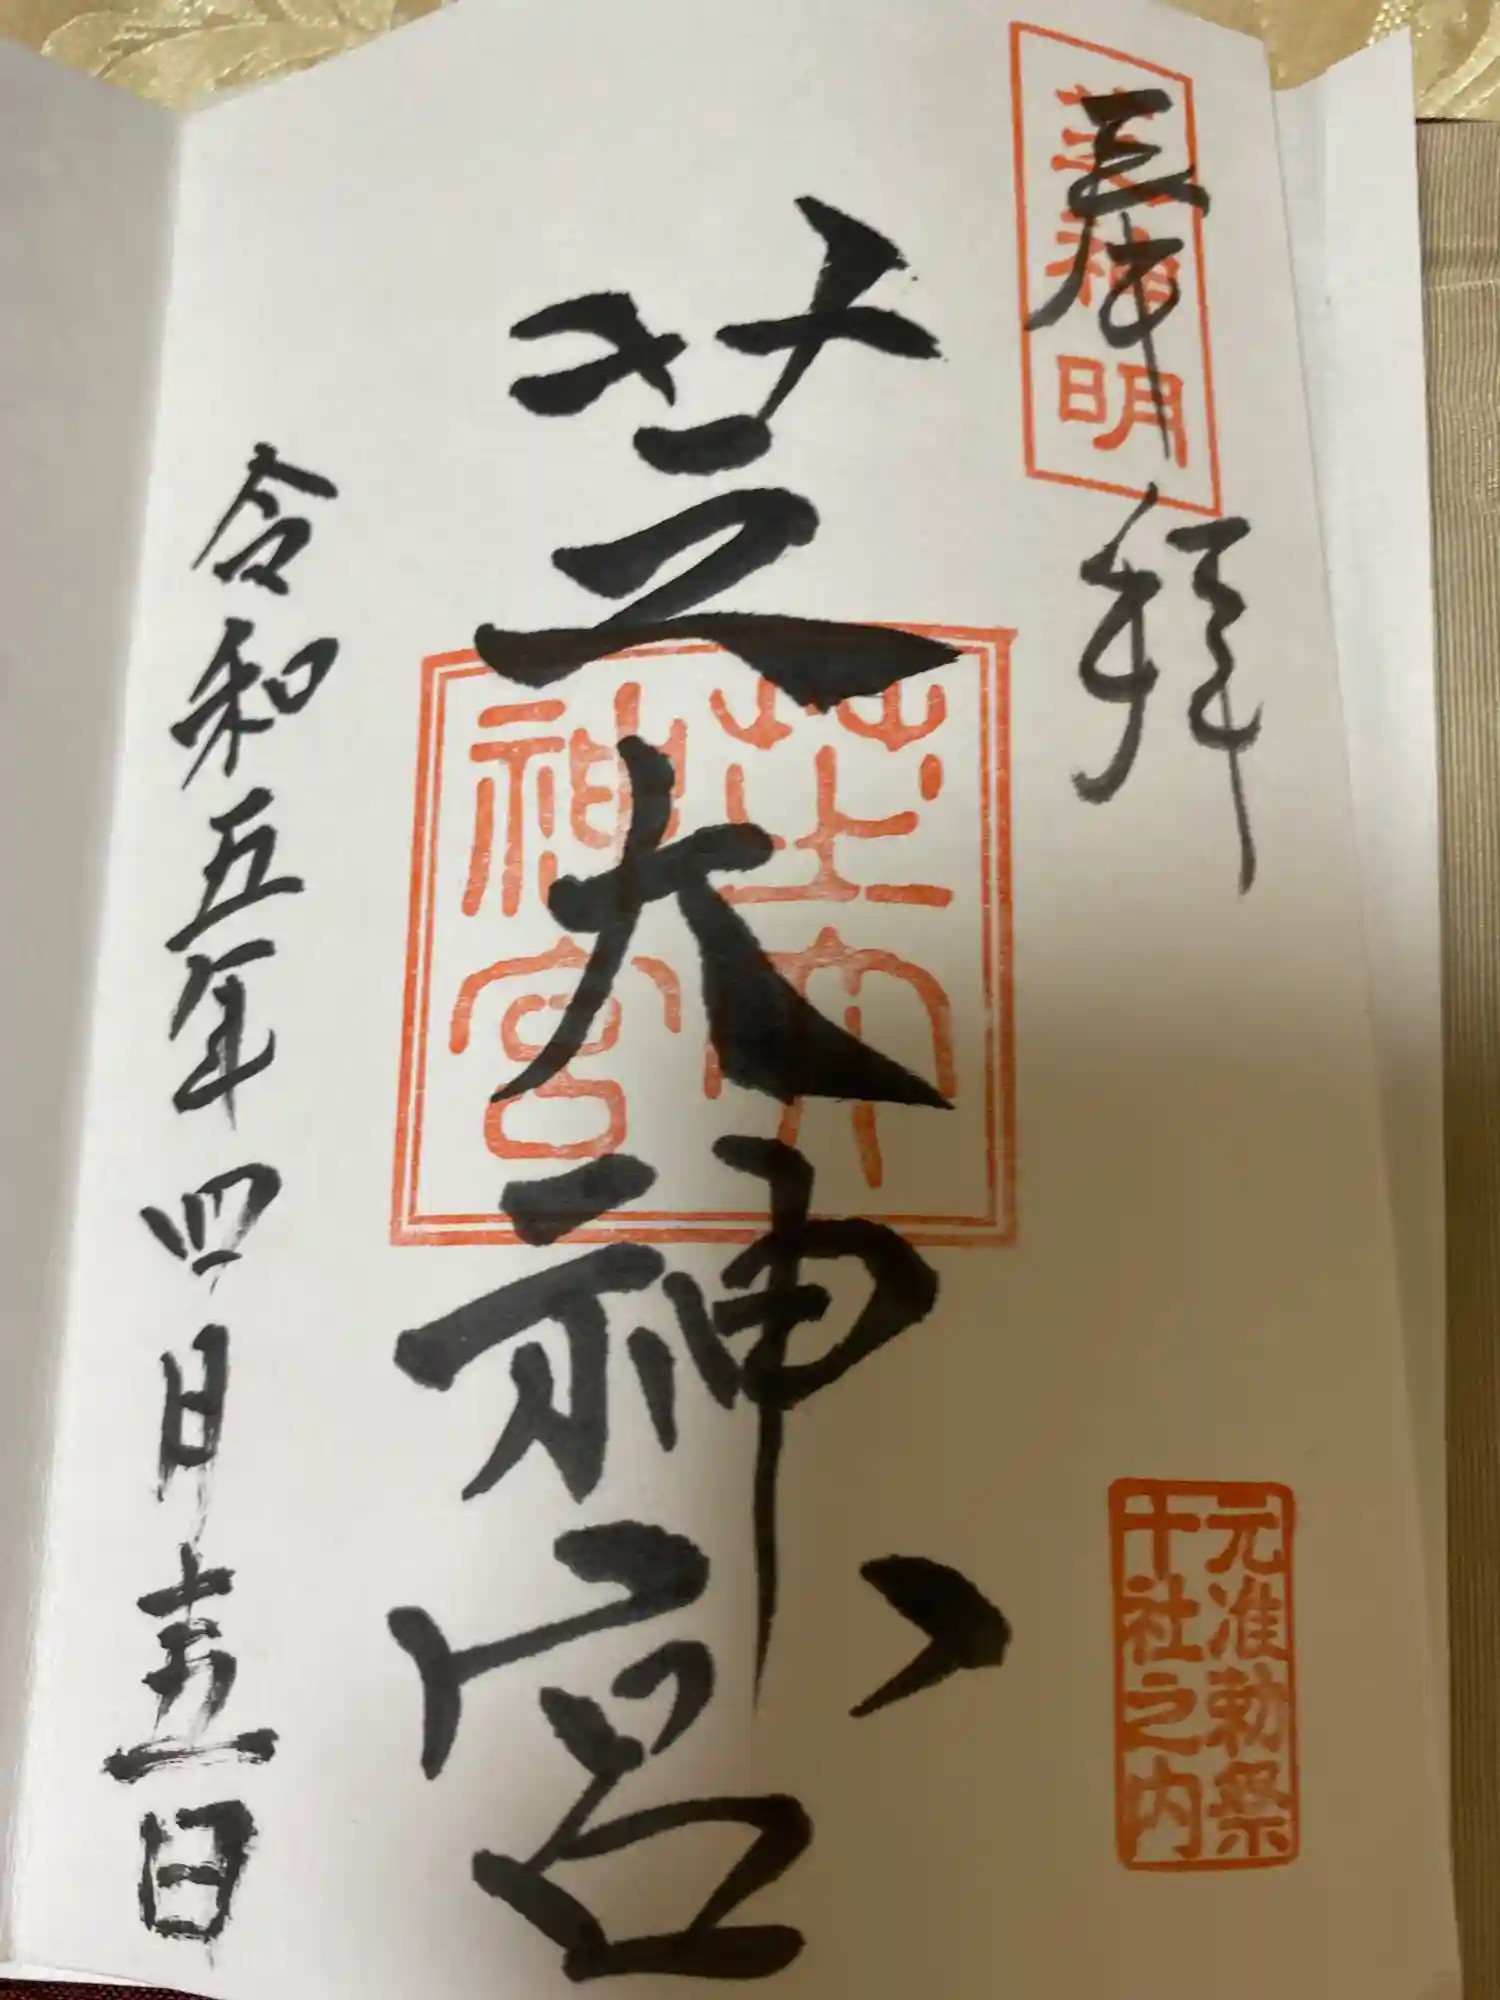 奉拝
芝神明
元准勅祭
十社之内
芝大神宮
芝大
神宮
令和五年四月十五日